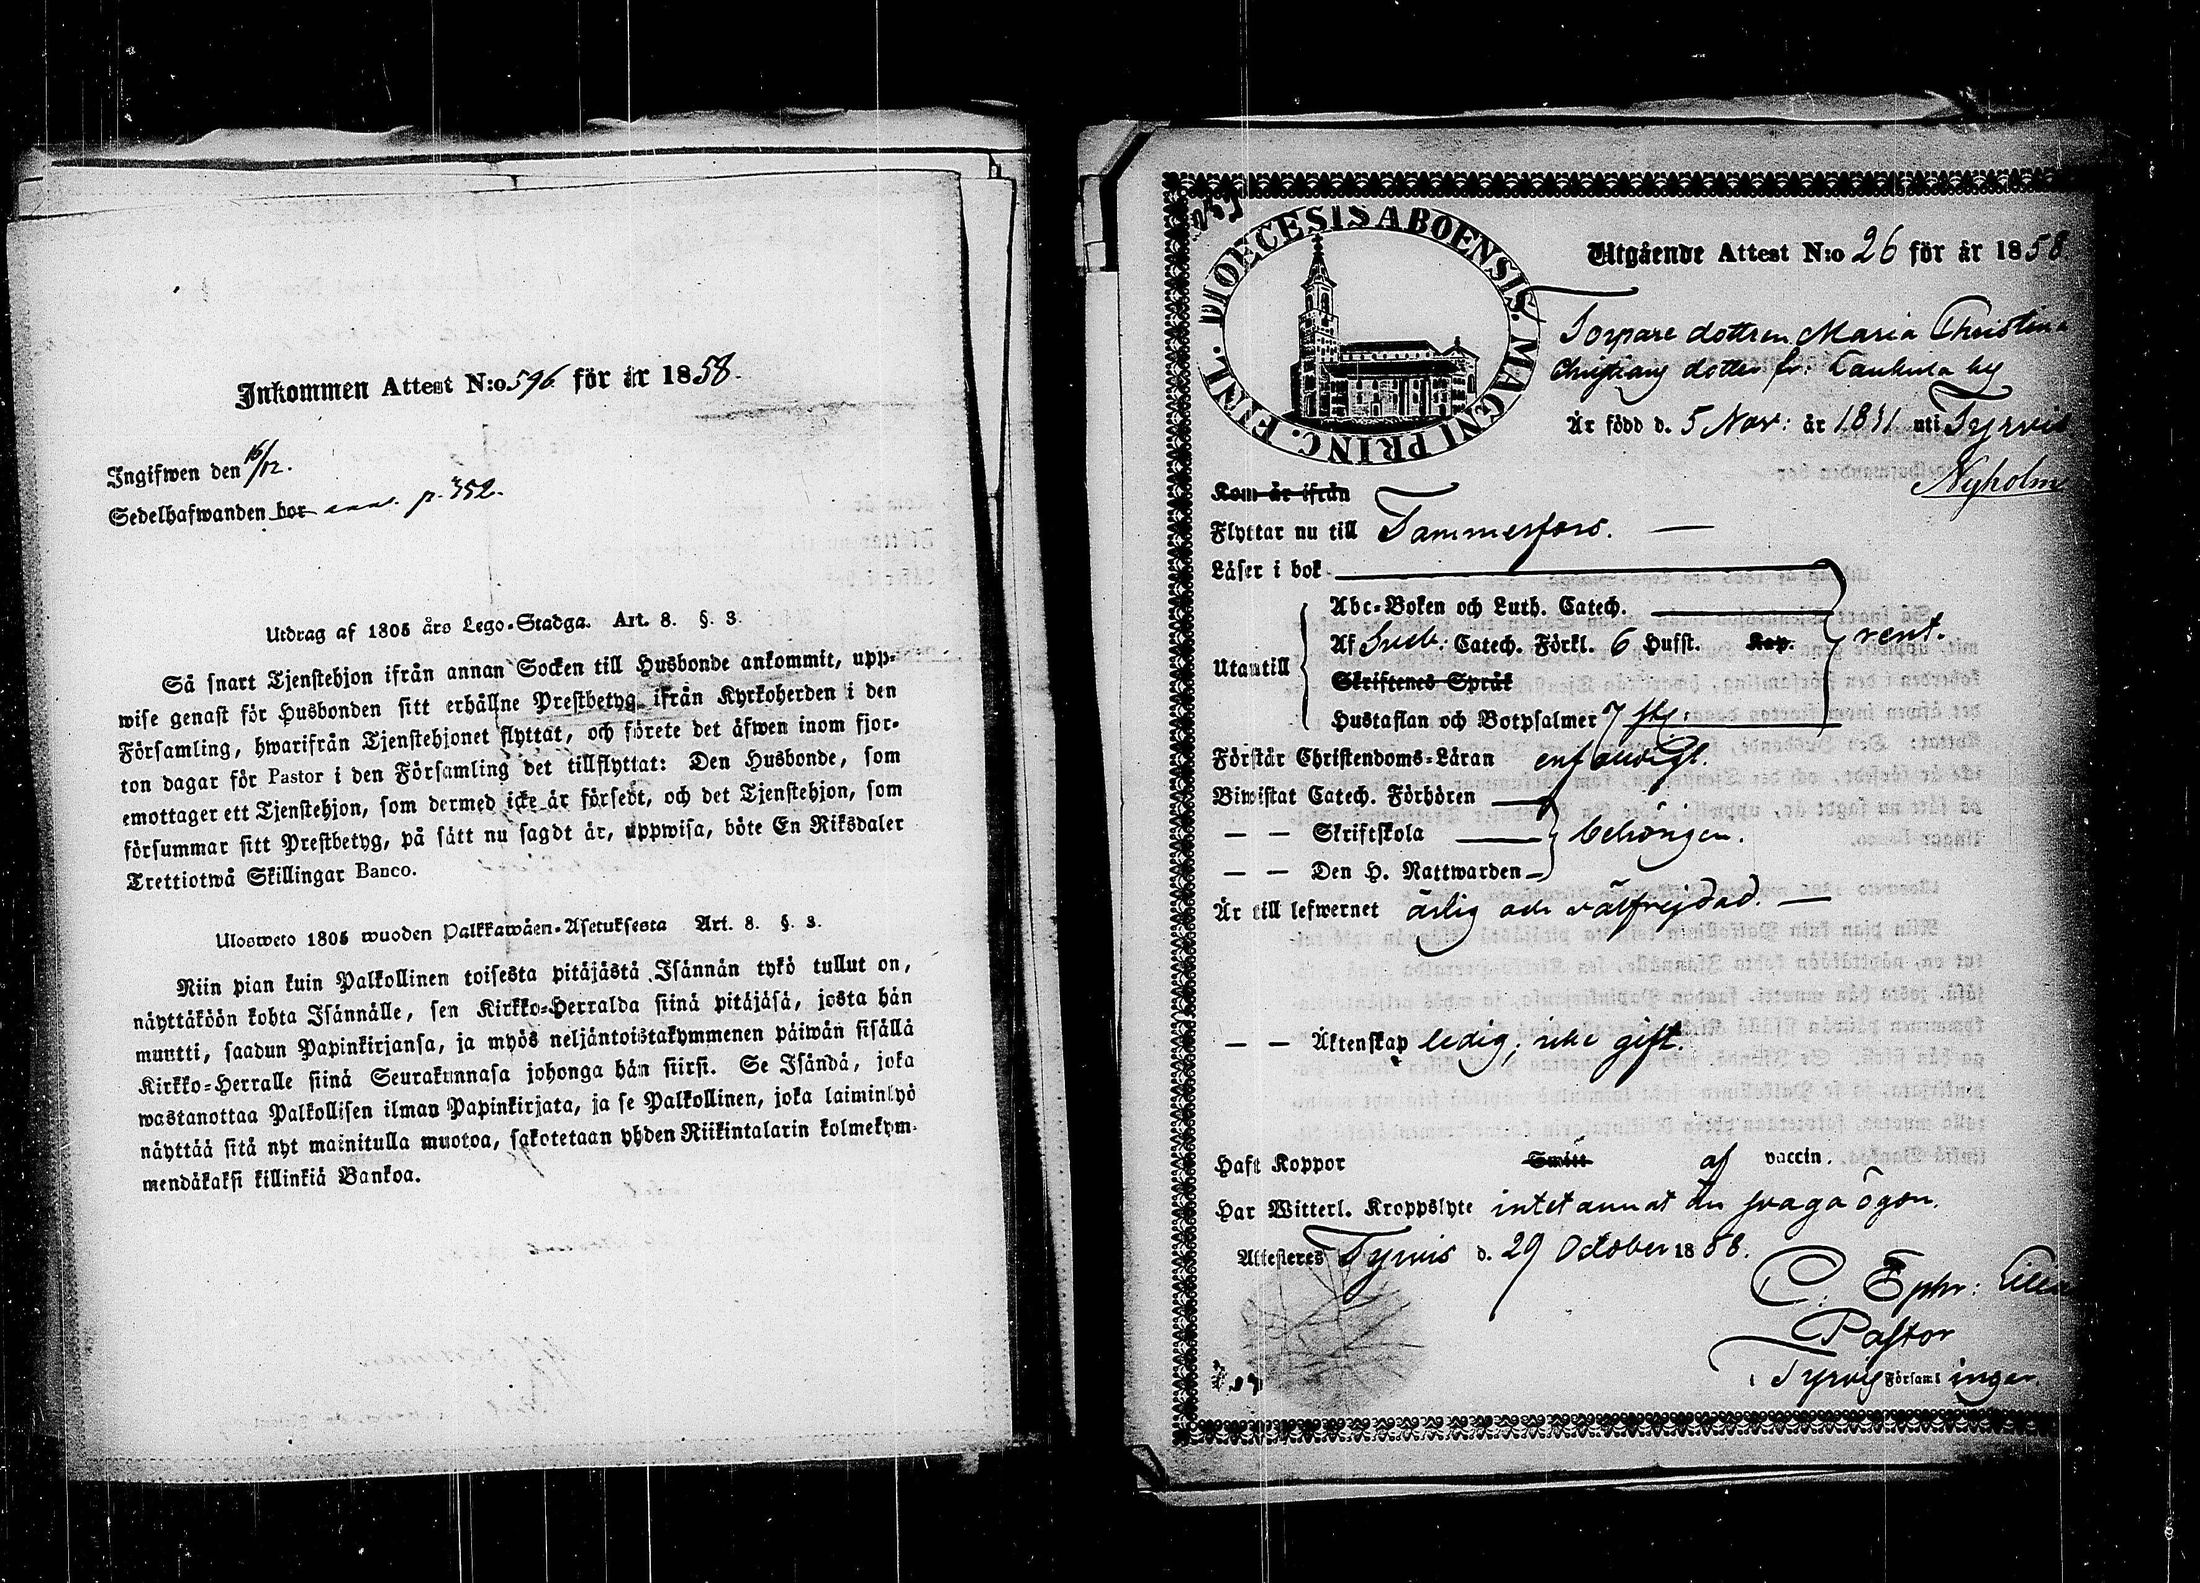 Inkommen Attest N:o 596 för år 1858.
Ingifwen den 16/12.
Sedelhafwanden bor p. 352.
Utdrag af 1805 års Lego-Stadga. Art. 8. §. 3.
Så snart Tjenstehjon ifrån annan Socken till Husbonde ankommit, upp-
wise genast för Husbonden sitt erhållne Prestbetyg ifrån Kyrkoherden i den
Församling, hwarifrån Tjenstehjonet flyttat, och förete det äfwen inom fjor-
ton dagar för Pastor i den Församling det tillflyttat: Den Husbonde, som
emottager ett Tjenstehjon, som dermed icke är försedt, och det Tjenstehjon, som
försummar sitt Prestbetyg, på sätt nu sagdt är, uppwisa, böte En Riksdaler
Trettiotwå Skillingar Banco.
Ulosweto 1805 wuoden Palkkawäen-Asetuksesta Art. 8. §. 3.
Niin pian kuin Palkollinen toisesta pitäjästä Isännän tykö tullut on,
näyttäköön kohta Isännälle, sen Kirkko-Herralda siinä pitäjäsä, josta hän
muutti, saadun Papinkirjansa, ja myös neljäntoistakymmenen päiwän sisällä
Kirkko-Herralle siinä Seurakunnasa johonga hän siirsi. Se Isändä, joka
wastanottaa Palkollisen ilman Papinkirjata, ja se Palkollinen, joka laiminlyö
näyttää sitä nyt mainitulla muotoa, sakotetaan yhden Riikintalarin kolmekym-
mendäkaksi killinkiä Bankoa.
DIOECESIS ABOENSIS. MAGNI PRINC. FINL.
Utgående Attest N:o 26 för år 1858
Torpare dottren Maria Christina
Christians dotter fr. Kaukula by
Är född d. 5 Nov: år 1841 uti Tyrvis
Nyholm
Kom år ifrån
Flyttar nu till Tammerfors.
Läser i bok
Abc-Boken och Luth. Catech.
Utantill Af Sveb: Catech. Förkl. 6 Husst. Kap. rent.
Skriftenes Språk
Hustaflan och Botpsalmer 7 st:
Förstår Christendoms-Läran enfaldigt.
Biwistat Catech. Förhören
— — Skriftskola behörigen.
— — Den H. Nattwarden
Är till lefwernet ärlig och välfrejdad.
— — Äktenskap ledig, icke gift.
Haft Koppor Smått af vaccin.
Har Witterl. Kroppslyte intet annat än svaga ögon.
Attesteres Tyrvis d. 29 October 1858.
C. Ephr: Lilius
Pastor
i Tyrvis Församlingar